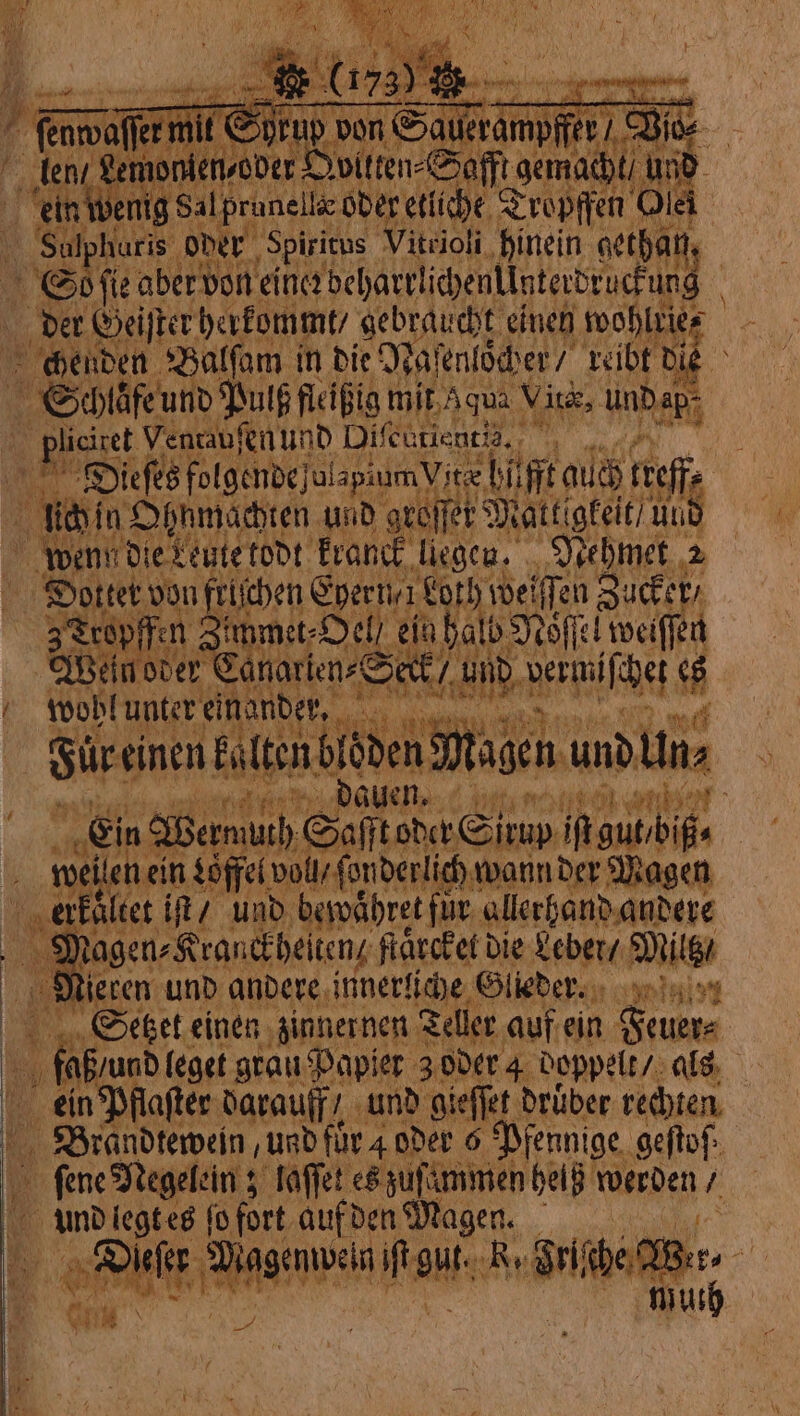 (173)
ſenwaſſer mit Syrup von Sauerampffer / Vio⸗
len/ Lemonien⸗oder Qvitten⸗Safft gemacht/ und
ein wenig Sal prunellæ oder etliche Tropffen Olei
Sulphuris oder Spiritus Vitrioli hinein gethan,
So ſie aber von einer beharrlichen Unterdruckung
der Geiſter herkommt/ gebraucht einen wohlrie⸗
chenden Balſam in die Naſenlöcher / reibt die
Schläfe und Pulß fleißig mit Aqua Vitæ, und ap-
pliciret Ventauſen und Diſcutientia.
Dieſes folgende Julapium Vitæ hilfft auch treff⸗
lich in Ohnmachten und groſſer Mattigkeit/ und
wenn die Leute todt kranck liegen. Nehmet 2
Dotter von friſchen Eyern/1 Loth weiſſen Zucker/
3 Tropffen Zimmet⸗Oel/ ein halb Nöſſel weiſſen
Wein oder Canarien⸗Seck / und vermiſchet es
wohl unter einander.
Für einen kalten blöden Magen und Un⸗
dauen.
Ein Wermuth Safft oder Sirup iſt gut/biß⸗
weilen ein Löffel voll/ ſonderlich wann der Magen
erkältet iſt / und bewähret für allerhand andere
Magen⸗Kranckheiten/ ſtärcket die Leber/ Miltz/
Nieren und andere innerliche Glieder.
Setzet einen zinnernen Teller auf ein Feuer⸗
faß/und leget grau Papier 3 oder 4 doppelt / als
ein Pflaſter darauff / und gieſſet drüber rechten
Brandtewein , und für 4 oder 6 Pfennige geſtoſ⸗
ſene Negelein ; laſſet es zuſammen heiß werden /
und legt es ſo fort auf den Magen.
Dieſer Magenwein iſt gut. R. Friſche Wer⸗
muth